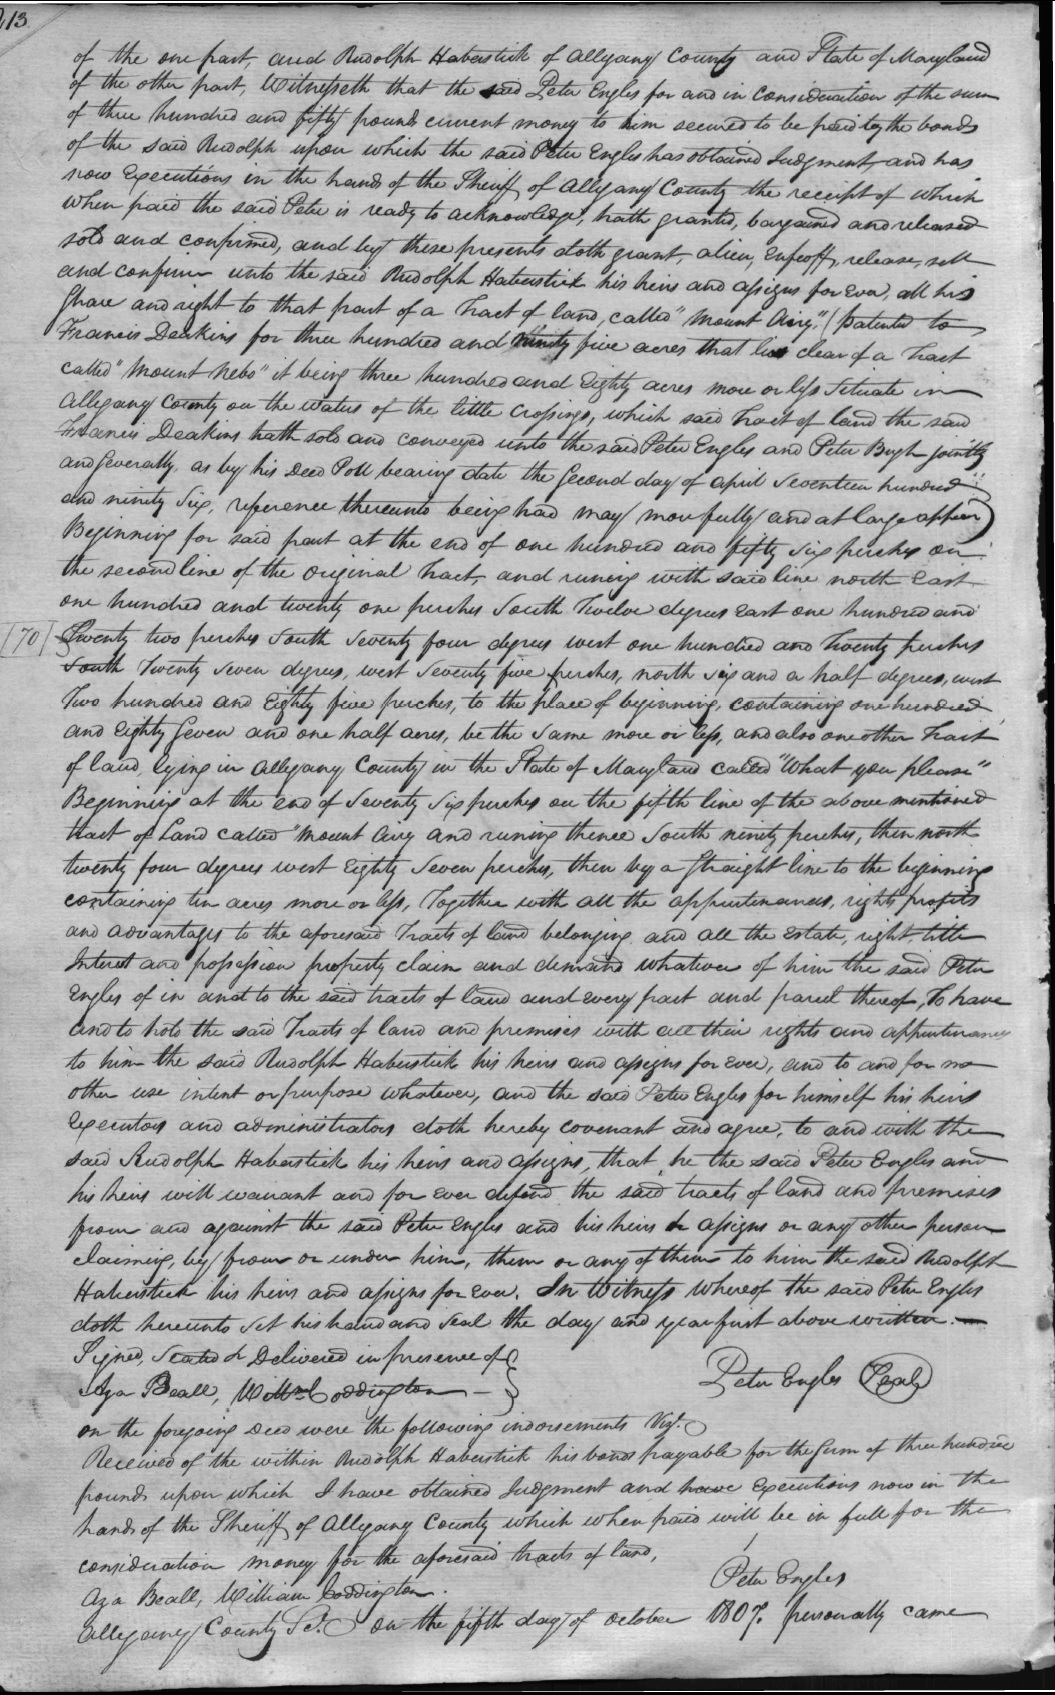 213
of the one part, and Rudolph Haberstick of Allegany County and State of Maryland
of the other part, Witnesseth that the said Peter Engles for and in consideration of the sum
of three hundred and fifty pounds current money to him secured to be paid by the bonds
of the said Rudolph upon which the said Peter Engles has obtained Judgment and has
now Executions in the hands of the Sheriff of Allegany County the receipt of which
when paid the said Peter is ready to acknowledge, hath granted, bargained and released
sold and confirmed, and by these presents doth grant, alien, Enfeoff, release, sell
and confirm unto the said Rudolph Haberstick his heirs and assigns for Ever, all his
Share and right to that part of a Tract of land, called "Mount Airy" (patented to
Francis Deakins for three hundred and ninety five acres that lies clear of a Tract
called "Mount Nebo" it being three hundred and Eighty acres more or less Situate in
Allegany County on the waters of the little Crossings, which said Tract of land the said
Francis Deakins hath sold and conveyed unto the said Peter Engles and Peter Bugh jointly
and Severally, as by his Deed Poll bearing date the Second day of April Seventeen hundred
and ninety Six, reference thereunto being had may more fully and at large appear)
Beginning for said part at the end of one hundred and fifty Six perches on
the second line of the original Tract, and runing with said line north East
one hundred and twenty one perches South Twelve degrees East one hundred and
[70] Twenty two perches South Seventy four degrees west one hundred and Twenty perches
South Twenty Seven degrees, west Seventy five perches, north Six and a half degrees, west
Two hundred and Eighty five perches, to the place of beginning, containing one hundred
and Eighty Seven and one half acres, be the Same more or less, and also one other Tract
of land, lying in Allegany County in the State of Maryland called "What you please"
Beginning at the end of Seventy Six perches on the fifth line of the above mentioned
tract of Land called "Mount Airy and runing thence South ninety perches, then north
twenty four degrees west Eighty Seven perches, then by a Straight line to the beginning
containing ten acres more or less, Together with all the appurtenances, rights profits
and advantages to the aforesaid Tracts of land belonging and all the Estate, right, title
Interest and possession property claim and demand whatever of him the said Peter
Engles of in and to the said tracts of land and every part and parcel thereof, To have
and to hold the said Tracts of land and premises with all their rights and appurtenances
to him the said Rudolph Haberstick his heirs and assigns for Ever, and to and for no
other use intent or purpose whatever, and the said Peter Engles for himself his heirs
Executors and administrators doth hereby covenant and agree, to and with the
said Rudolph Haberstick his heirs and assigns, that he the said Peter Engles and
his heirs will warrant and for Ever defend the said tracts of land and premises
from and against the said Peter Engles and his heirs & assigns or any other person
claiming, by, from or under him, them or any of them to him the said Rudolph
Haberstick his heirs and assigns for Ever. In Witness whereof the said Peter Engles
doth hereunto Set his hand and Seal the day and year first above written. —
Signed, Sealed & Delivered in presence of }
Aza Beall, Willm Coddington — } Peter Engles (Seal)
on the foregoing Deed were the following indorsements Vizt.
Received of the within Rudolph Haberstick his bonds payable for the Sum of three hundred
pounds upon which I have obtained Judgment and have Executions now in the
hands of the Sheriff of Allegany County which when paid will be in full for the
consideration money for the aforesaid tracts of land,
Aza Beall, William Coddington. Peter Engles
Allegany County Sc. On the fifth day of October 1807. personally came